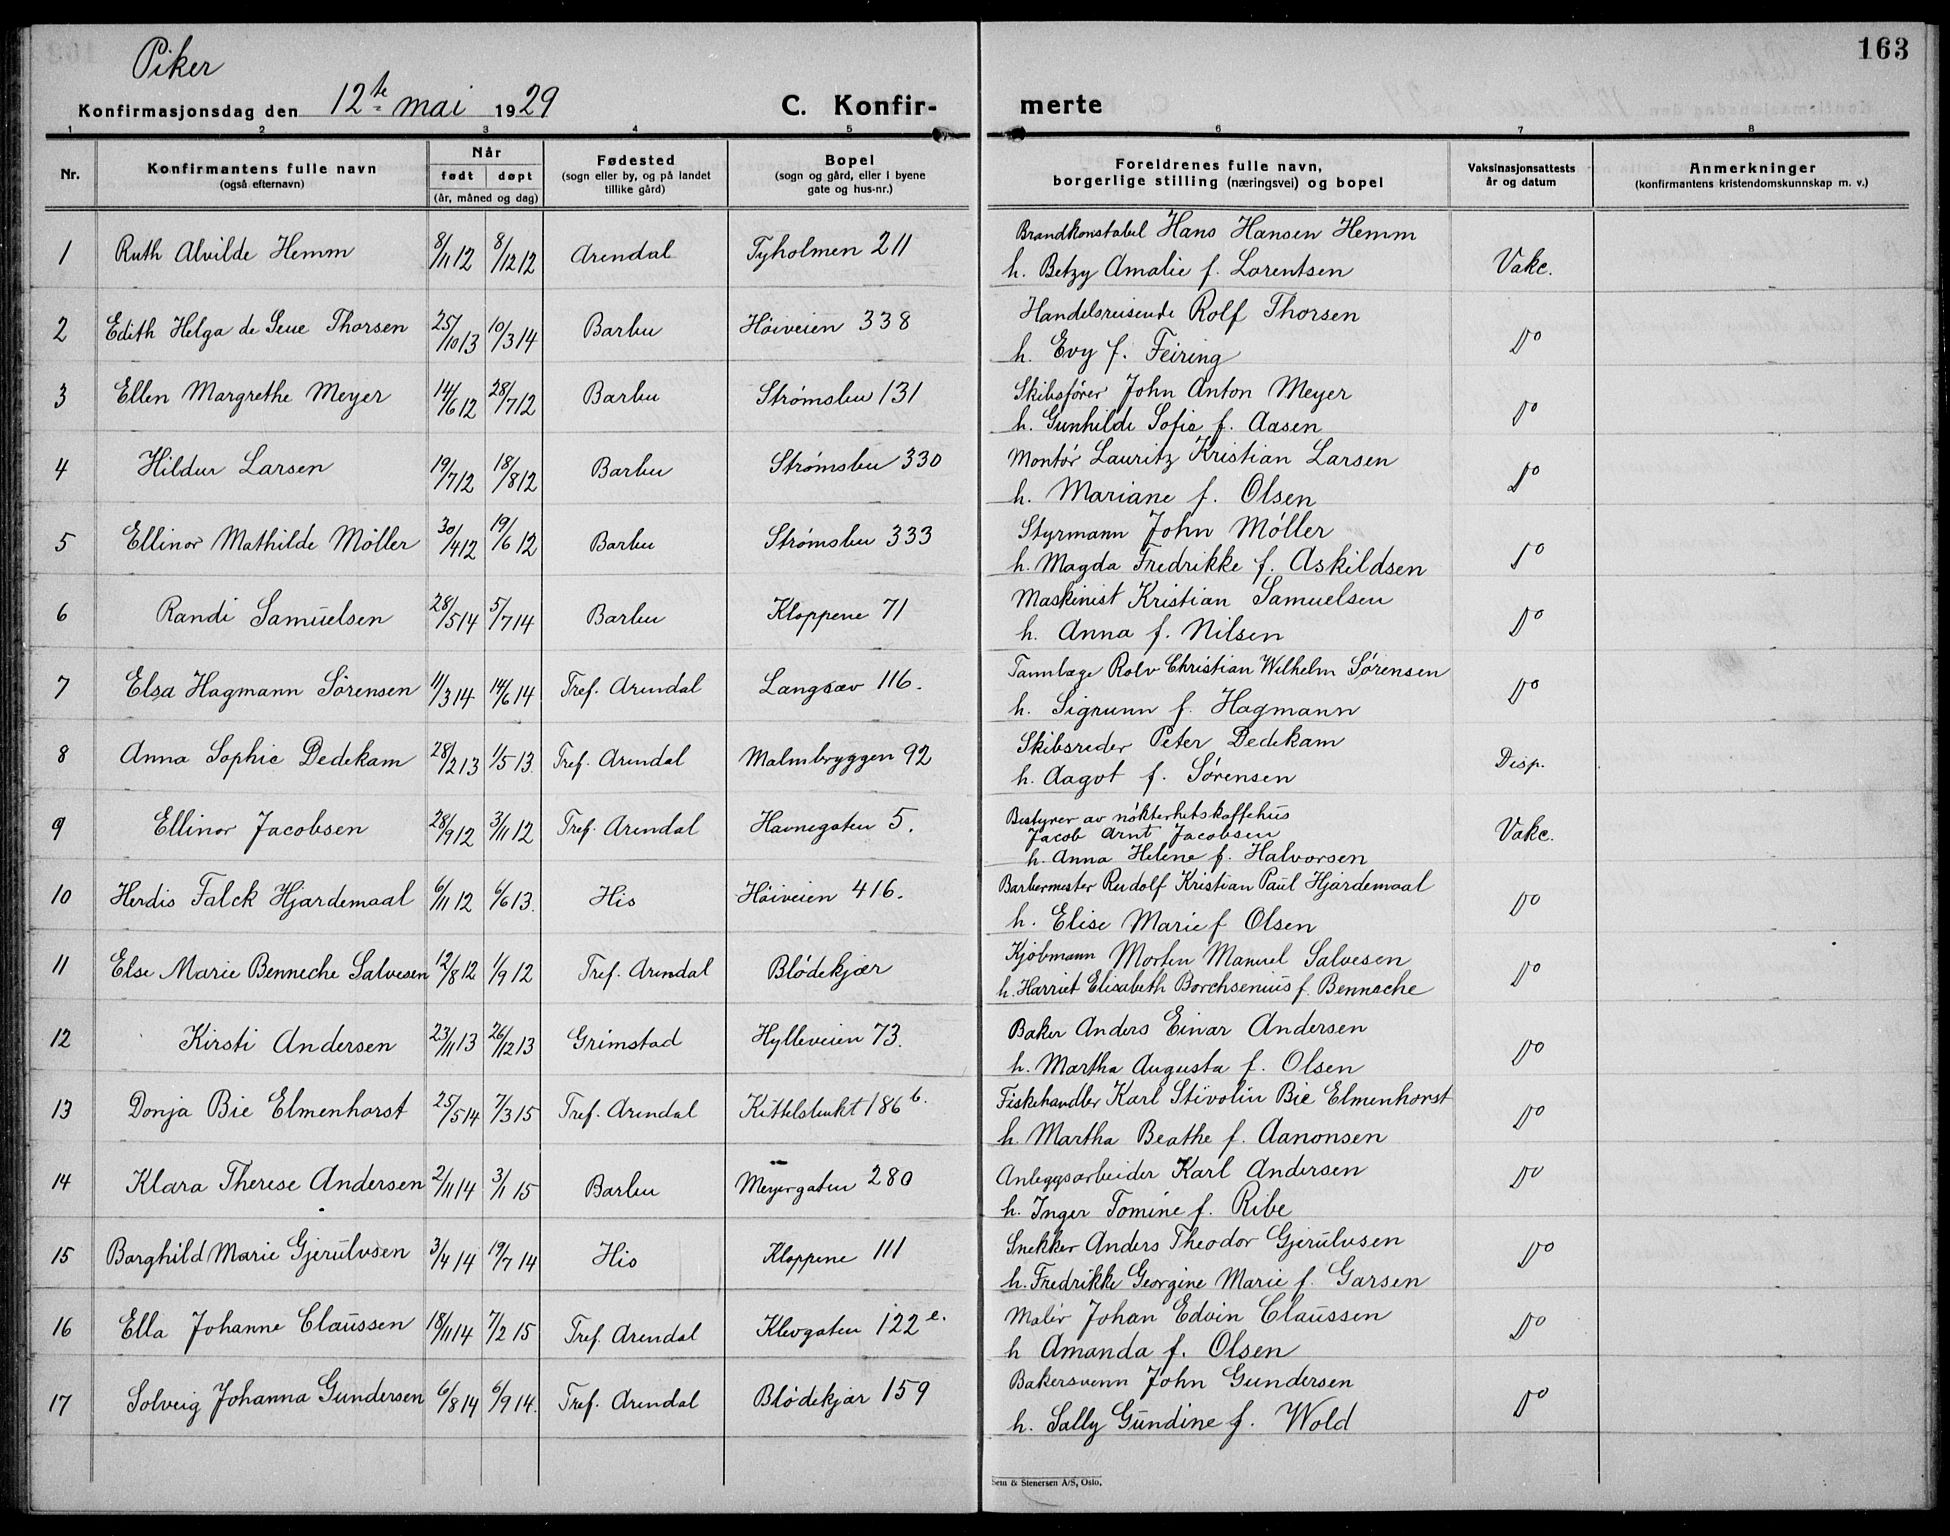 163
Piker
Konfirmasjonsdag den 12te mai 1929 C. Konfir- merte
1 2 3 4 5 6 7 8
Nr. Konfirmantens fulle navn (også efternavn) Når født døpt (år, måned og dag) Fødested (sogn eller by, og på landet tillike gård) Bopel (sogn og gård, eller i byene gate og hus-nr.) Foreldrenes fulle navn, borgerlige stilling (næringsvei) og bopel Vaksinasjonsattests år og datum Anmerkninger (konfirmantens kristendomskunnskap m. v.)
1 Ruth Alvilde Hemm 8/11 12 8/12 12 Arendal Tyholmen 211 Brandkonstabel Hans Hansen Hemm
h. Betzy Amalie f. Lorentsen Vakc.
2 Edith Helga de Seue Thorsen 25/10 13 10/3 14 Barbu Höiveien 338 Handelsreisende Rolf Thorsen
h. Evy f. Feiring Do
3 Ellen Margrethe Meyer 14/6 12 28/7 12 Barbu Strømsbu 131 Skibsfører John Anton Meyer
h. Gunhilde Sofie f. Aasen Do
4 Hildur Larsen 19/7 12 18/8 12 Barbu Strømsbu 330 Montør Lauritz Kristian Larsen
h. Mariane f. Olsen Do
5 Ellinor Mathilde Möller 30/4 12 19/6 12 Barbu Strømsbu 333 Styrmann John Møller
h. Magda Fredrikke f. Askildsen Do
6 Randi Samuelsen 28/5 14 5/7 14 Barbu Kloppene 71 Maskinist Kristian Samuelsen
h. Anna f. Nilsen Do
7 Elsa Hagmann Sörensen 11/3 14 14/6 14 Tref. Arendal Langsæv 116. Tannlæge Rolv Christian Wilhelm Sörensen
h. Sigrunn f. Hagmann Do
8 Anna Sophie Dedekam 28/2 13 1/5 13. Tref. Arendal Malmbryggen 92 Skibsreder Peter Dedekam
h. Aagot f. Sørensen Disp.
9 Ellinor Jacobsen 28/9 12 3/11 12 Tref. Arendal Havnegaten 5. Bestyrer av nökterhetskaffehus
Jacob Arnt Jacobsen
h. Anna Helene f. Halvorsen Vakc.
10 Herdis Falck Hjardemaal 6/11 12 6/6 13. His Höiveien 416. Barbermester Rudolf Kristian Paul Hjardemaal
h. Elise Marie f Olsen Do
11 Else Marie Benneche Salvesen 12/8 12 1/9 12 Tref. Arendal Blödekjær Kjöbmann Morten Manuel Salvesen
h. Harriet Elisabeth Borchsenius f. Benneche Do
12 Kirsti Andersen 23/11 13 26/12 13 Grimstad Hylleveien 73. Baker Anders Einar Andersen
h. Martha Augusta f. Olsen Do
13 Donja Bie Elmenhorst 25/5 14 7/3 15 Tref. Arendal Kittelsbukt 186 b. Fiskehandler Karl Stivolin Bie Elmenhorst
h. Martha Beathe f. Aanonsen Do
14 Klara Therese Andersen 2/11 14 3/1 15 Barbu Meyergaten 280 Anleggsarbeider Karl Andersen
h. Inger Tomine f. Ribe Do
15 Borghild Marie Gjerulvsen 3/4 14 19/7 14 His Kloppene 111 Snekker Anders Theodor Gjerulvsen
h. Fredrikke Georgine Marie f. Garsen Do
16 Ella Johanne Claussen 18/11 14 7/2 15 Tref. Arendal Klevgaten 122 e. Maler Johan Edvin Claussen
h Amanda f. Olsen Do
17 Solveig Johanna Gundersen 6/8 14 6/9 14. Tref. Arendal Blödekjær 159 Bakersvenn John Gundersen
h. Sally Gundine f. Wold Do
Sem & Stenersen A/S, Oslo.